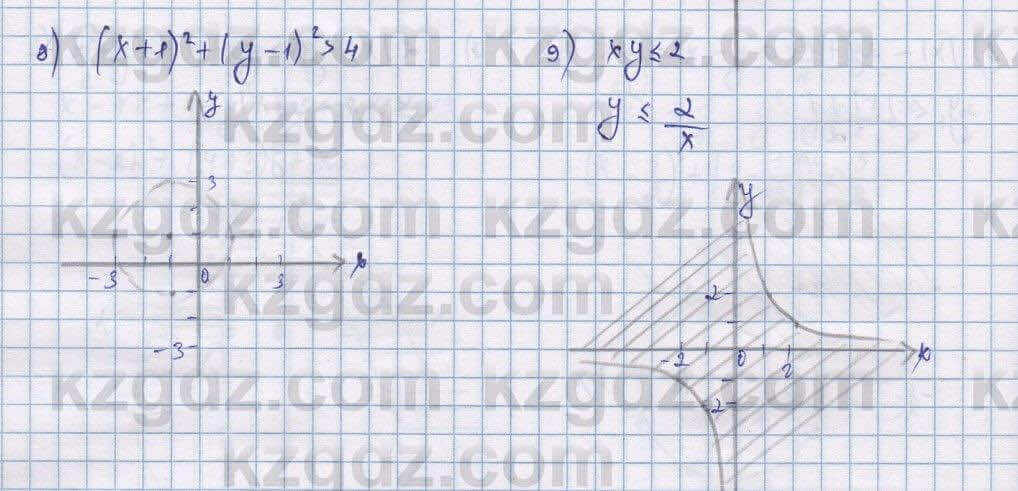 8) (x+1)²+(y-1)²>4
9) xy≤2
y ≤ 2/x
y
3
-3 0 3 x
-3
y
2
-2 0 2 x
-2
kzgdz.com
kzgdz.com
kzgdz.com
kzgdz.com
kzgdz.com
kzgdz.com
kzgdz.com
kzgdz.com
kzgdz.com